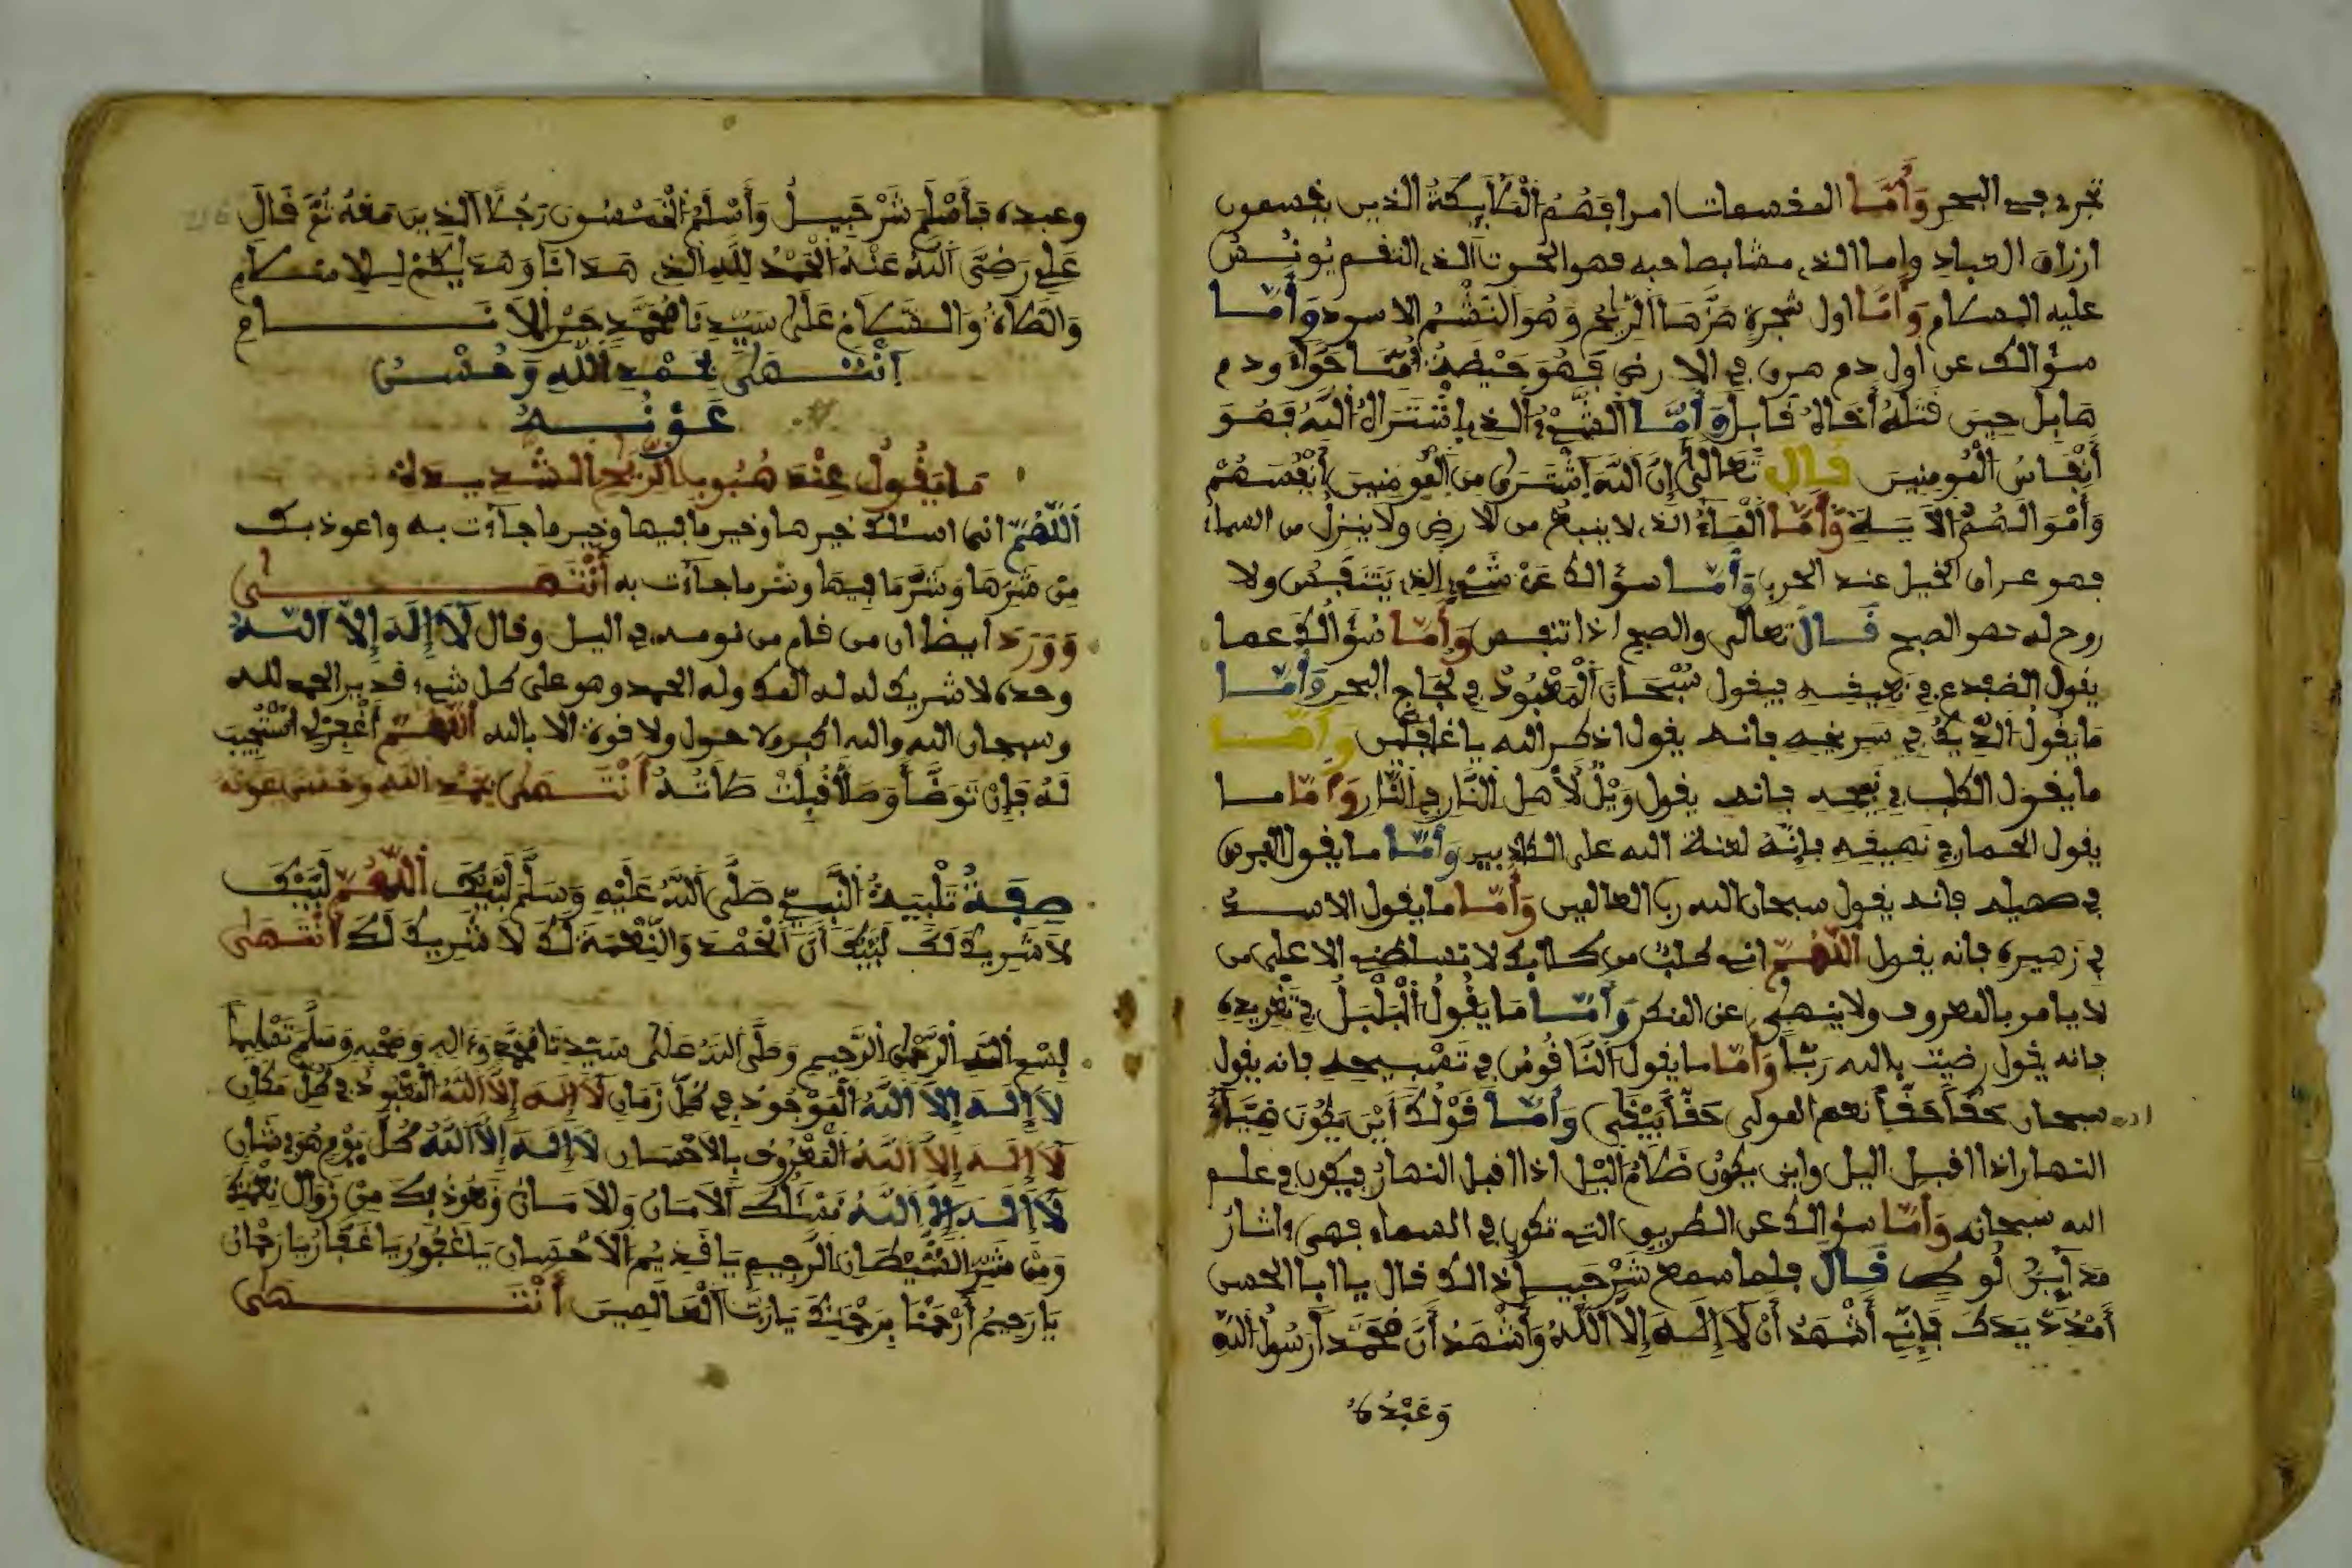 تجري في البحر وَأَمَّا المقسمات امرا فَهُمُ الْمَلَائِكَةُ الذين يقسمون
ارزاق العباد واما الذي مشا بصاحبه فهو الحوت الذي التقم يُونُسَ
عليه السلام وَأَمَّا اول شجرة هَزَّهَا الرِّيحُ وَهُوَ النَّشْمُ الاسود وَأَمَّا
سؤالك عن اول دم هرق في الارض فَهُوَ حَيْضَةُ أُمِّنَا حَوَّاءَ ودم
هَابِل حِينَ قَتَلَهُ أَخَاهُ قَابِل وَأَمَّا الشَّيْءُ الذي اشْتَرَاهُ اللَّهُ فَهُوَ
أَنْفَاسُ الْمُومِنِينَ قَالَ تَعَالَى إِنَّ اللَّهَ اشْتَرَى مِنَ الْمُومِنِينَ أَنْفُسَهُمْ
وَأَمْوَالَهُمُ الْآيَة وَأَمَّا الْمَاءُ الذي لا ينبع من الارض ولا ينزل من السماء
فهو عراق الخيل عند الحرب وَأَمَّا سؤالك عَنْ شَيْءٍ الذي يَتَنَفَّسُ ولا
روح له فهو الصبح قَالَ تعالى والصبح اذا تنفس وَأَمَّا سُؤَالُكَ عما
يقول الضفدع في نَقِيقِهِ فيقول سُبْحَانَ الْمَعْبُودُ في لُجَاجِ البحر وَأَمَّا
مَا يَقُولُ الدِّيكُ في سريخه فانه يقول اذكر الله يا غافلين وَأَمَّا
ما يقول الكلب في نَبِيحِهِ فانه يقول وَيْلٌ لأَهل النَّار في النَّار وَأَمَّا ما
يقول الحمار في نَهِيقِهِ فإِنَّهُ لعنة الله على الكاذبين وَأَمَّا ما يقول الفرس
في صهيله فانه يقول سبحان الله رب العالمين وَأَمَّا ما يقول الاسد
في زهيره فانه يقول اللَّهُمَّ اني كلبٌ من كلابك لا تسلطني الا على من
لا يامر بالمعروف ولا ينهى عن المنكر وَأَمَّا مَا يَقُولُ الْبُلْبُلُ في تَغْرِيدِهِ
فانه يقول رضيت بالله رَبّاً وَأَمَّا ما يقول النَّاقُوسُ في تَسْبِيحِهِ فانه يقول
سبحان حَقّاً حَقّاً نعم المولى حَقّاً يَبْقَى وَأَمَّا قَوْلُكَ أَيْنَ يَكُونُ ضِيَاءُ
النهار اذا اقبل اليل واين يكون ظَلَامُ اليْل اذا اقبل النهار فيكون في علم
الله سبحانه وَأَمَّا سؤالك عن الطريق التي تكون في السماء فهي واثارُ
قَالَ فلما سمع شَرْحَبِيل ذالك قال يا ابا الحسن
أُمْدُدْ يَدَكَ فَإِنِّي أَشْهَدُ أَنْ لَا إِلَهَ إِلَّا اللَّهُ وَأَشْهَدُ أَنَّ مُحَمَّداً رَسُولُ اللَّهِ
وَعَبْدُهُ
وعبده فَأَسْلَمَ شَرْحَبِيلُ وَأَسْلَمَ الْخَمْسُونَ رَجُلًا الذِينَ مَعَهُ ثُمَّ قَالَ
عَلِي رَضِيَ اللَّهُ عَنْهُ الْحَمْدُ لِلَّهِ الذي هَدَانَا وَهَدَيْكُمْ لِلاسلام
وَالصَّلَاةُ وَالسَّلَامُ عَلَى سَيِّدِنَا مُحَمَّدٍ خَيْرِ الْأَنَامِ
انْتَهَى بِحَمْدِ اللَّهِ وَحُسْنِ
عَوْنِهِ
مَا يَقُولُ عِنْدَ هُبُوبِ الرِّيحِ الشَّدِيدَةِ
اللَّهُمَّ اني اسئلك خيرها وخير ما فيها وخير ما جاءت به واعوذ بك
مِنْ شَرِّهَا وَشَرِّ مَا فِيهَا وشر ما جاءت به انْتَهَى
وَوَرَدَ ايضا ان من قام من نومه في اليل وقال لَا إِلَهَ إِلَّا اللَّهُ
وحده لا شريك له له الملك وله الحمد وهو على كل شيء قدير الحمد لله
وسبحان الله والله اكبر ولا حول ولا قوة الا بالله اللَّهُمَّ اغْفِرْ لِي اسْتُجِيبَ
لَهُ فَإِنْ تَوَضَّأَ وَصَلَّا قُبِلَتْ صَلَاتُهُ انْتَهَى بِحَمْدِ اللَّهِ وَحُسْنِ عَوْنِهِ
صِفَةُ تَلْبِيَةُ النَّبِيِّ صَلَّى اللَّهُ عَلَيْهِ وَسَلَّمَ لَبَّيْكَ اللَّهُمَّ لَبَّيْكَ
لَا شَرِيكَ لَكَ لَبَّيْكَ أَنَّ الْحَمْدَ وَالنِّعْمَةَ لَكَ لَا شَرِيكَ لَكَ انْتَهَى
بِسْمِ اللَّهِ الرَّحْمَنِ الرَّحِيمِ وَصَلَّى اللَّهُ عَلَى سَيِّدِنَا مُحَمَّدٍ وَءَالِهِ وَصَحْبِهِ وَسَلَّمَ تَسْلِيماً
لَا إِلَهَ إِلَّا اللَّهُ الْمَوْجُودُ فِي كُلِّ زَمَانٍ لَا إِلَهَ إِلَّا اللَّهُ الْمَعْبُودُ فِي كُلِّ مَكَانٍ
لَا إِلَهَ إِلَّا اللَّهُ الْمَعْرُوفُ بِالْاحْسَانِ لَا إِلَهَ إِلَّا اللَّهُ كُلَّ يَوْمٍ هُوَ فِي شَانٍ
لَا إِلَهَ إِلَّا اللَّهُ نَسْئَلُكَ الْأَمَانَ وَالْأَمَانُ وَنَعُوذُ بِكَ مِنْ زَوَالِ نِعْمَتِكَ
وَمِنْ شَرِّ الشَّيْطَانِ الرَّجِيمِ يَا قَدِيمُ الْاحْسَانِ يَا غَفُورُ يَا غَفَّارُ يَا رَحْمَانُ
يَا رَحِيمُ ارْحَمْنَا بِرَحْمَتِكَ يَا رَبَّ الْعَالَمِينَ انْتَهَى